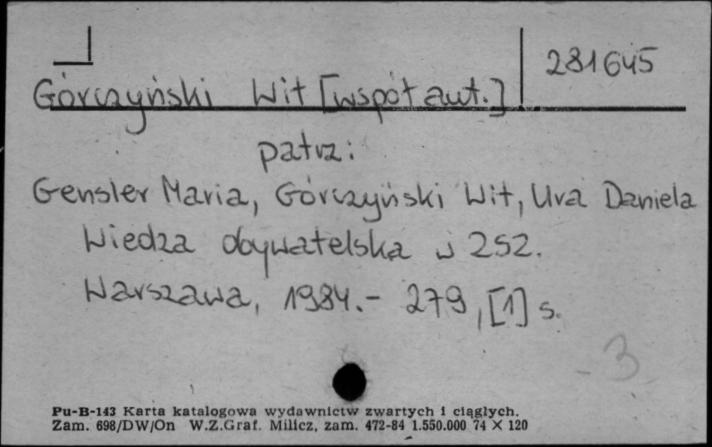 281645
Górczyński Wit [współaut.]
patrz:
Gensler Maria, Górczyński Wit, Ura Daniela
Wiedza obywatelska w 252.
Warszawa, 1984.- 279, [1] s.
- 3
Pu-B-143 Karta katalogowa wydawnictw zwartych i ciągłych.
Zam. 698/DW/On W.Z.Graf. Milicz, zam. 472-84 1.550.000 74 X 120